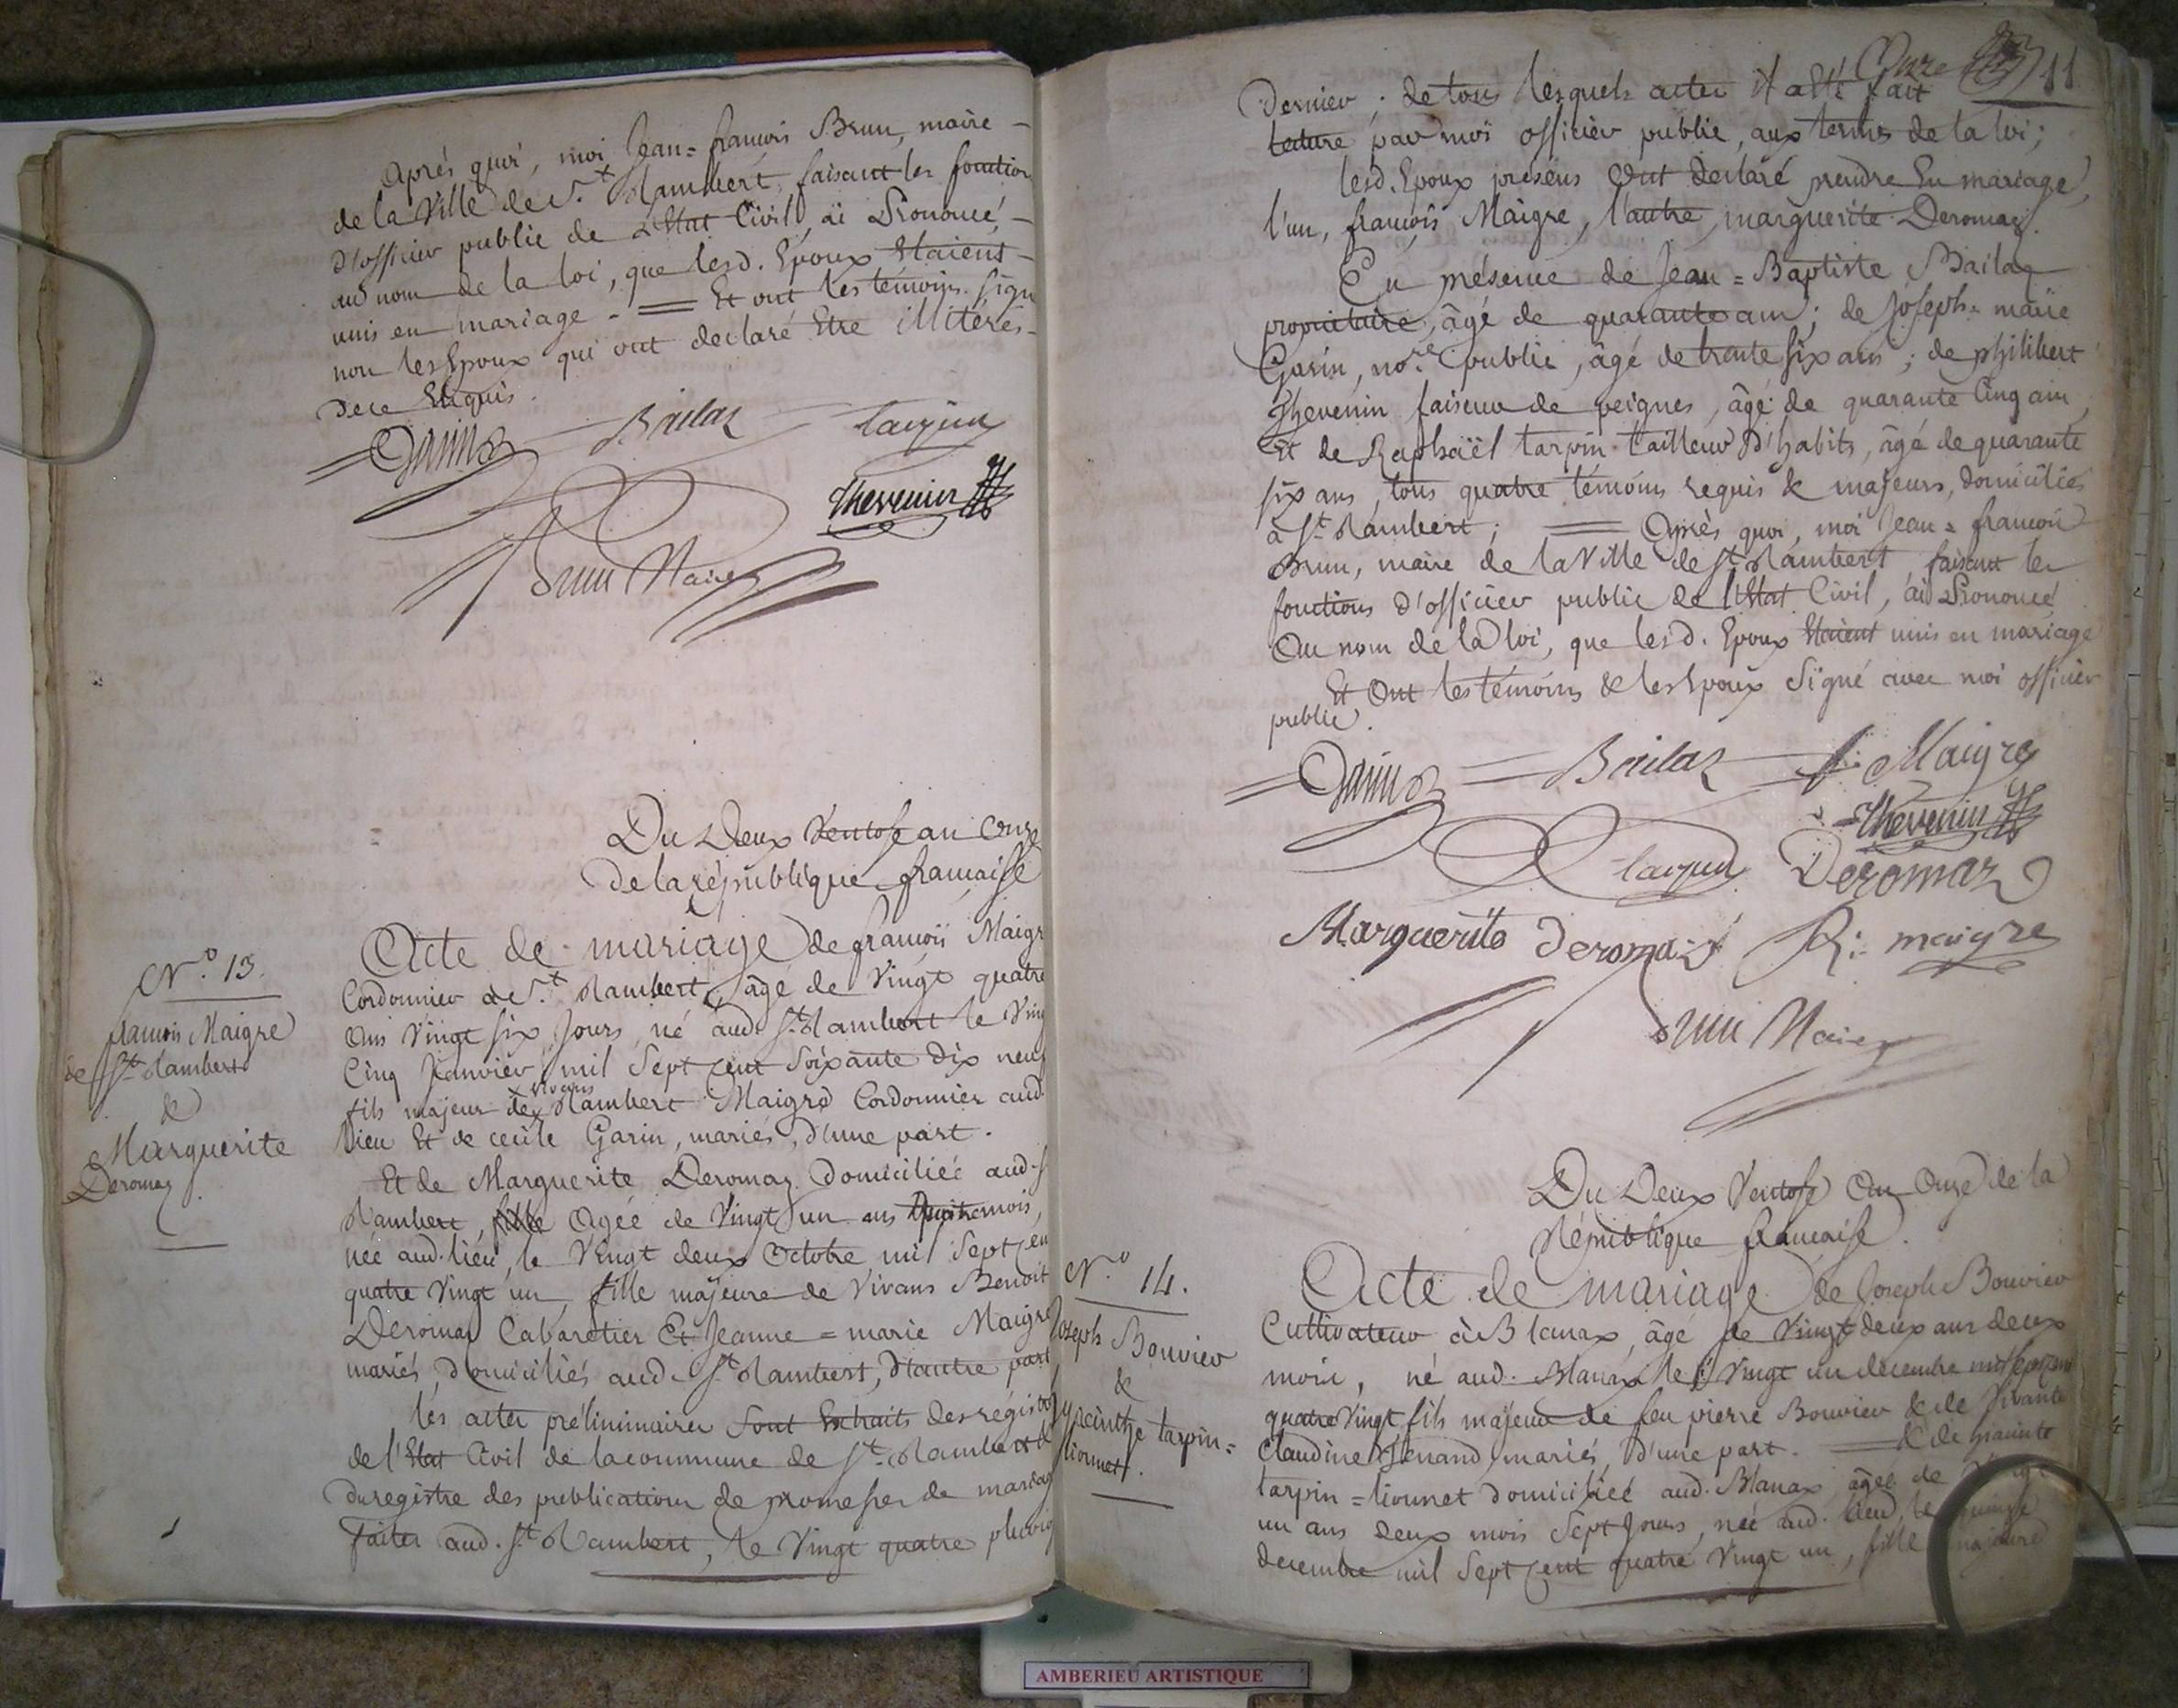 Après quoi, moi Jean=françois Brun, maire
de la Ville de St. Rambert, faisant les fonction
d'officier public de L'Etat Civil, ai Prononcé
au nom de la loi, que lesd. Epoux Etaient
unis en mariage. = Et ont les témoins signé
non les Epoux qui ont declaré Etre illiterés
de ce Enquis.
Garin Bailaz tarpin
Thevenin
Brun Maire
Du Deux Ventose an onze
De la république française
N.o 13.
françois Maigre
de St. Rambert
&
Marguerite
Deromaz.
Acte de mariage de françois Maigre
Cordonnier à St. Rambert, âgé de Vingt quatre
ans Vingt six Jours, né aud. St. Rambert le Vingt
Cinq Janvier mil Sept cent Soixante dix neuf
fils majeur de vivans Rambert Maigre Cordonnier aud.
lieu Et de cecile Garin, mariés, d'une part.
Et de Marguerite Deromaz domiciliée aud. St.
Rambert, fille Agée de Vingt un ans Quatre mois,
née aud. lieu, le Vingt deux Octobre mil Sept cen
quatre Vingt un, fille majeure de Vivans Benoit
Deromaz Cabaretier Et Jeanne=marie Maigre
mariés, Domiciliés aud. St. Rambert, D'autre part
les actes préliminaires Sont Extraits des régistres
de l'Etat Civil de la commune de St. Rambert &
Du registre des publications de promesses de mariage
faites aud. St. Rambert, le Vingt quatre pluvio
Onze 11
Dernier; de tous lesquels actes il a été fait
lecture par moi officier public, aux termes de la loi;
lesd. Epoux présens Ont Declaré prendre En mariage,
l'un, françois Maigre, l'autre, marguerite Deromaz.
En présence de Jean=Baptiste Bailaz
propriétaire, âgé de quarante ans; de Joseph=marie
Garin, no.re public, âgé de trente six ans; de philibert
Thevenin faiseur de peignes, âgé de quarante Cinq ans,
Et de Raphaël tarpin tailleur d'habits, âgé de quarante
six ans, tous quatre témoins requis & majeurs, domiciliés
à St. Rambert; = Après quoi, moi Jean=françois
Brun, maire de la Ville de St. Rambert, faisant les
fonctions d'officier public de l'Etat Civil, ai Prononcé
Au nom de la loi, que lesd. Epoux Etaient unis en mariage
Et Ont les témoins & les Epoux Signé avec moi officier
public.
Garin Bailaz f: Maigre
Thevenin
tarpin Deromaz
Marguerite Deromaz R: maigre
Brun Maire
Du Deux Ventose An Onze de la
République française.
N.o 14.
Joseph Bouvier
&
hyacinthe tarpin=
lionnet.
Acte de mariage de Joseph Bouvier
Cultivateur à Blanax, âgé de Vingt deux ans deux
mois, né aud. Blanax le Vingt un decembre mil sept cent
quatre Vingt fils majeur de feu pierre Bouvier & de Vivante
Claudine Tenand mariés, d'une part. = & de hiacinte
tarpin=lionnet domiciliée aud. Blanax, âgée de Vingt
un ans deux mois Sept Jours, née aud. lieu, le quinze
decembre mil Sept cent quatre Vingt un, fille majeure
AMBERIEU ARTISTIQUE